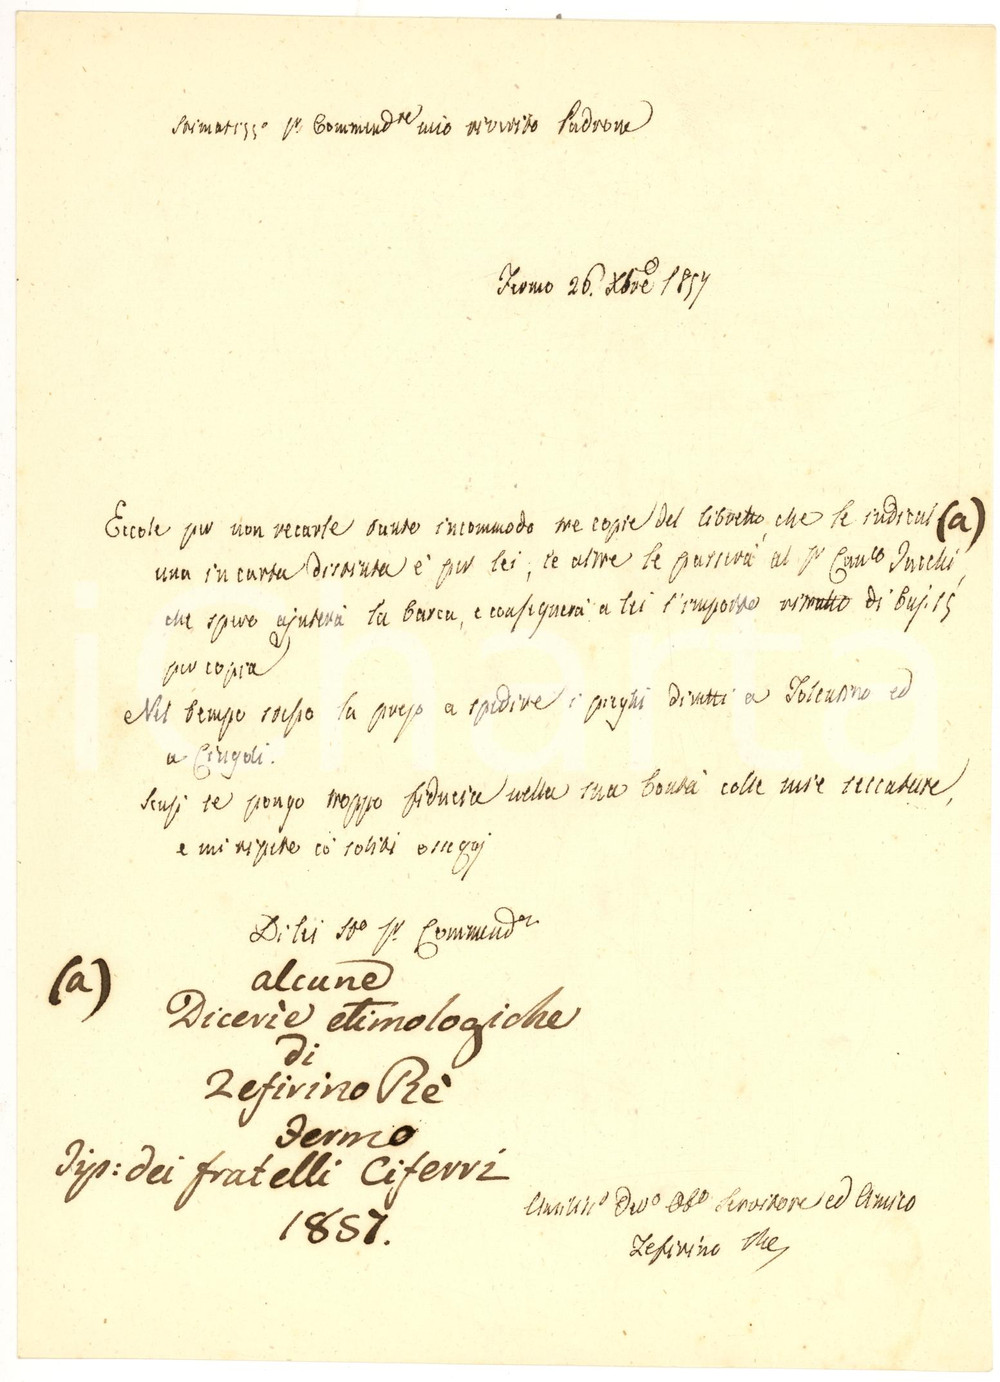 Stimatiss.º Sr. Commend.re mio riverito Padrone
Fermo 26. Xbre 1857
Eccole per non recarle tanto incommodo tre copie del libretto, che le indicai (a)
una in carta distinta è per lei, le altre le passerà al Sr. Can.co
che spero ajuterà la barca, e consegnerà a lei l'importo di baj. 15
per copia
Nel tempo stesso la prego a spedire i pieghi diretti a Tolentino ed
a Cingoli.
Scusi se pongo troppo fiducia nella sua bontà colle mie seccature,
e mi ripeto co' soliti osseqj
Di lei Sr. Commend.re
(a) alcune
Dicerìe etimologiche
di
Zefirino Rè
Fermo
Tip: dei fratelli Ciferri
1857.
Dev.º Obb.º Servitore ed Amico
Zefirino Re